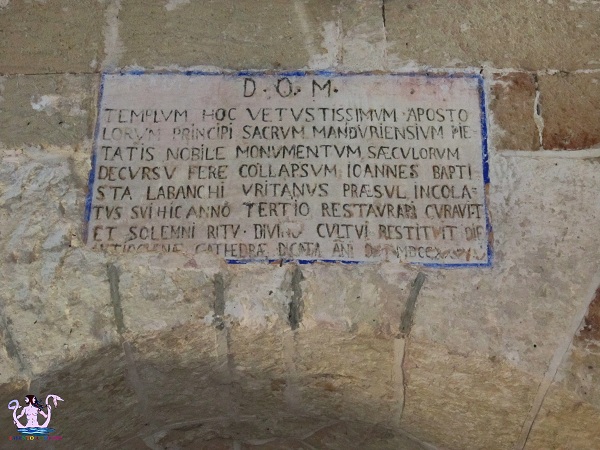 D·O·M·
TEMPLVM HOC VETVSTISSIMVM APOSTO
LORVM PRINCIPI SACRVM MANDVRIENSIVM PIE
TATIS NOBILE MONVMENTVM, SÆCVLORVM
DECVRSV FERE COLLAPSVM, IOANNES BAPTI
STA LABANCHI VRITANVS PRÆSVL INCOLA
TVS SVI HIC ANNO TERTIO RESTAVRARI CVRAVIT
ET SOLEMNI RITV DIVINO CVLTVI RESTITVIT DIE
CATHEDRÆ DICATA